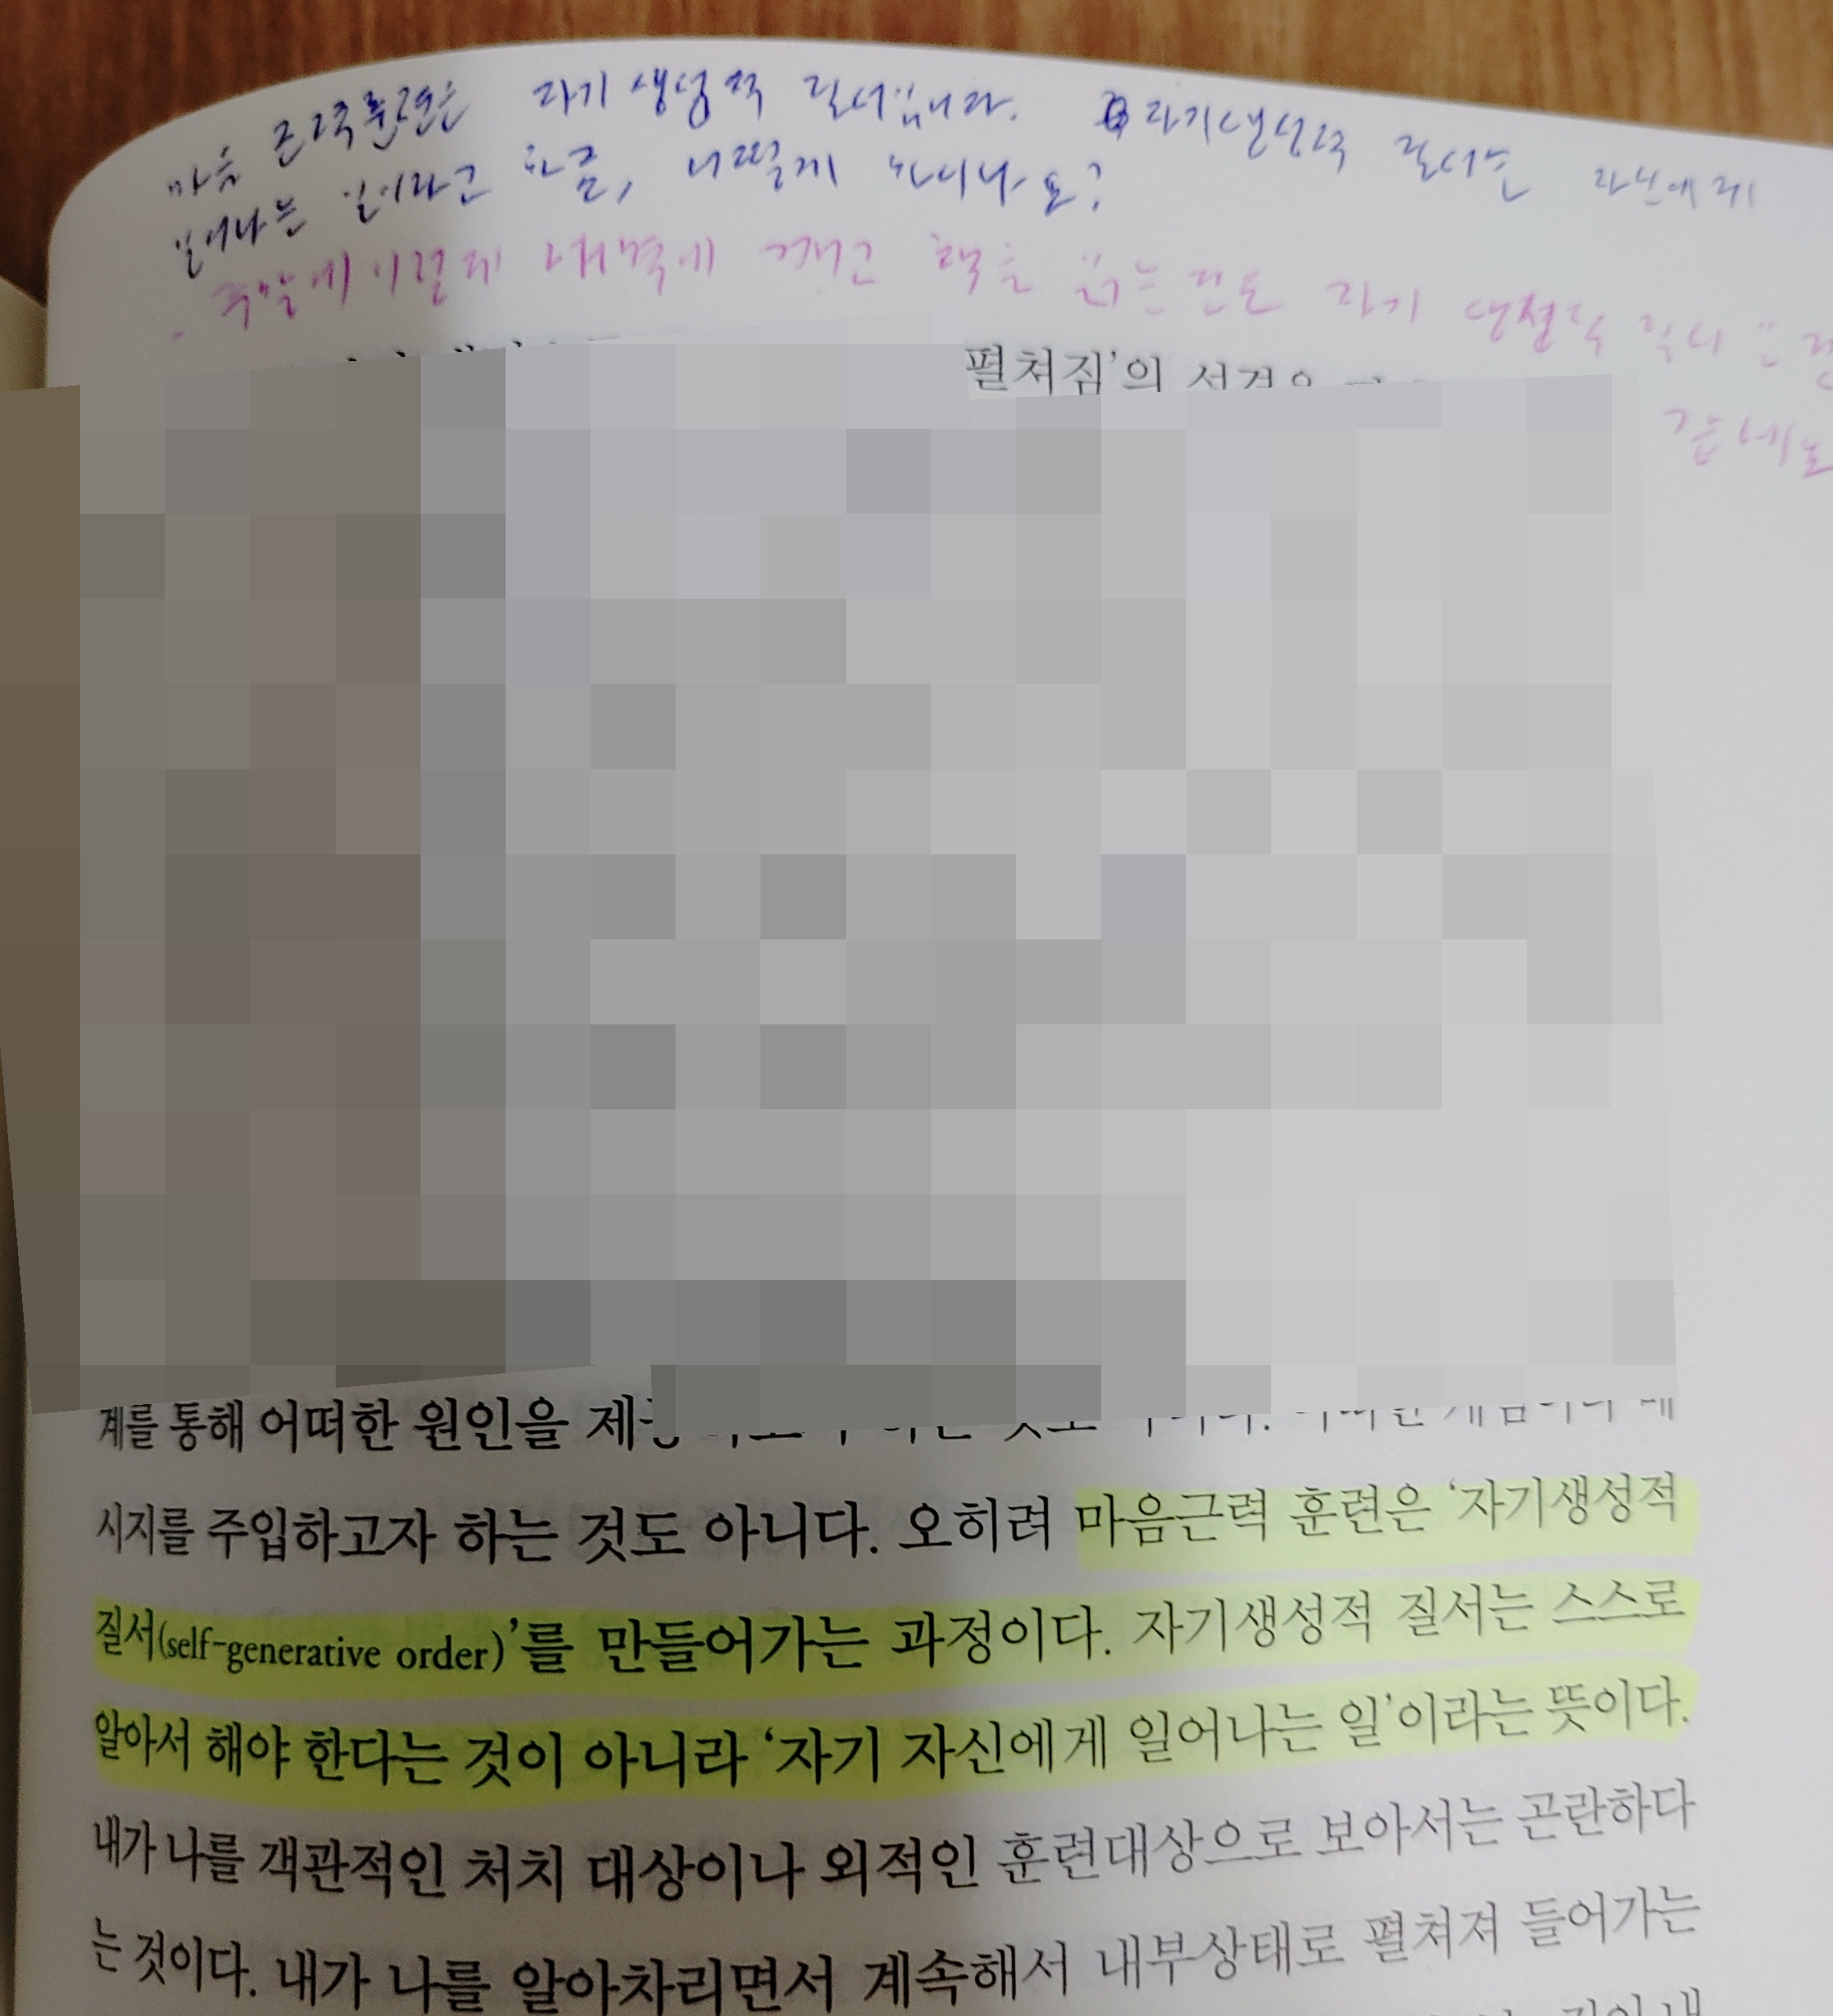 마음 근력훈련은 자기 생성적 질서입니다. 자기생성적 질서는 자신에게
일어나는 일이라고 하는 , 어떻게 하시나요?
주말에 이렇게 새벽에 깨고 책을 읽는 것도 자기 생성적 질서
펼쳐짐’의
계를 통해 어떠한 원인을
시지를 주입하고자 하는 것도 아니다. 오히려 마음근력 훈련은 ‘자기생성적
질서(self-generative order)’를 만들어가는 과정이다. 자기생성적 질서는 스스로
알아서 해야 한다는 것이 아니라 ‘자기 자신에게 일어나는 일’이라는 뜻이다.
내가 나를 객관적인 처치 대상이나 외적인 훈련대상으로 보아서는 곤란하다
는 것이다. 내가 나를 알아차리면서 계속해서 내부상태로 펼쳐져 들어가는